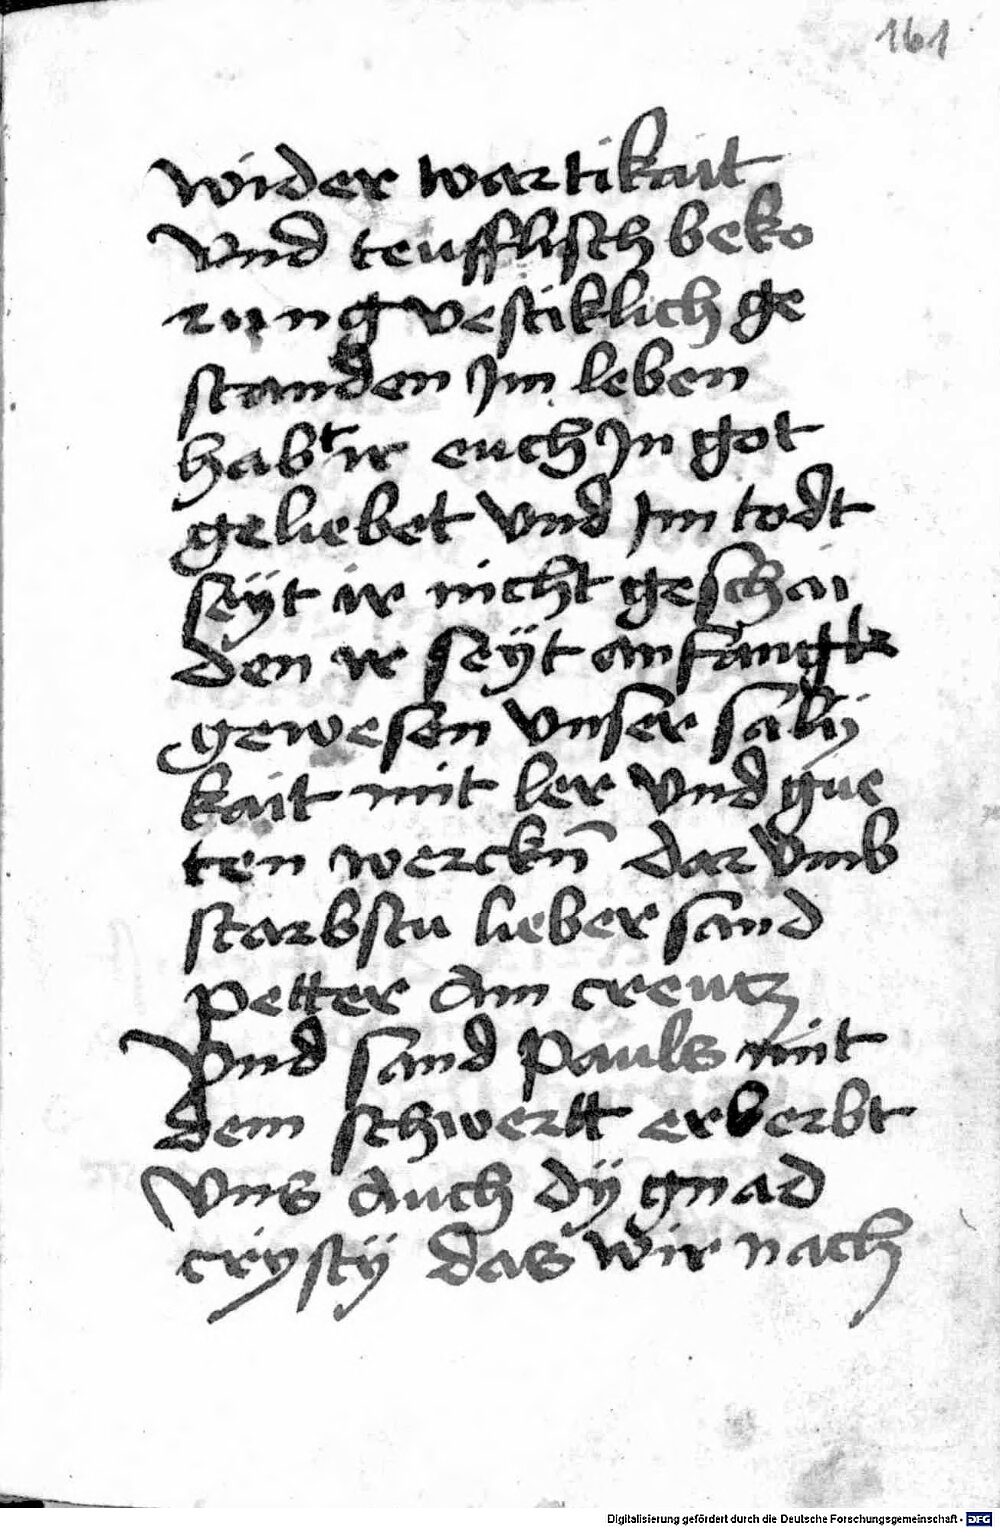 161
wider wartikait
vnd teufflisch beko
rung vestiklich ge
standen Im leben
habt ir euch In got
geliebet vnd Im todt
seÿt ir nicht geschai
den ir seÿt anfangk
gewesen vnser sälÿ
kait mit ler vnd gue
ten werckn̄ dar vmb
starbstu lieber sand
petter am creutz
vnd sand pauls mit
dem schwertt erberbt
vns auch dÿ gnad
cristÿ das wir nach
Digitalisierung gefördert durch die Deutsche Forschungsgemeinschaft - DFG